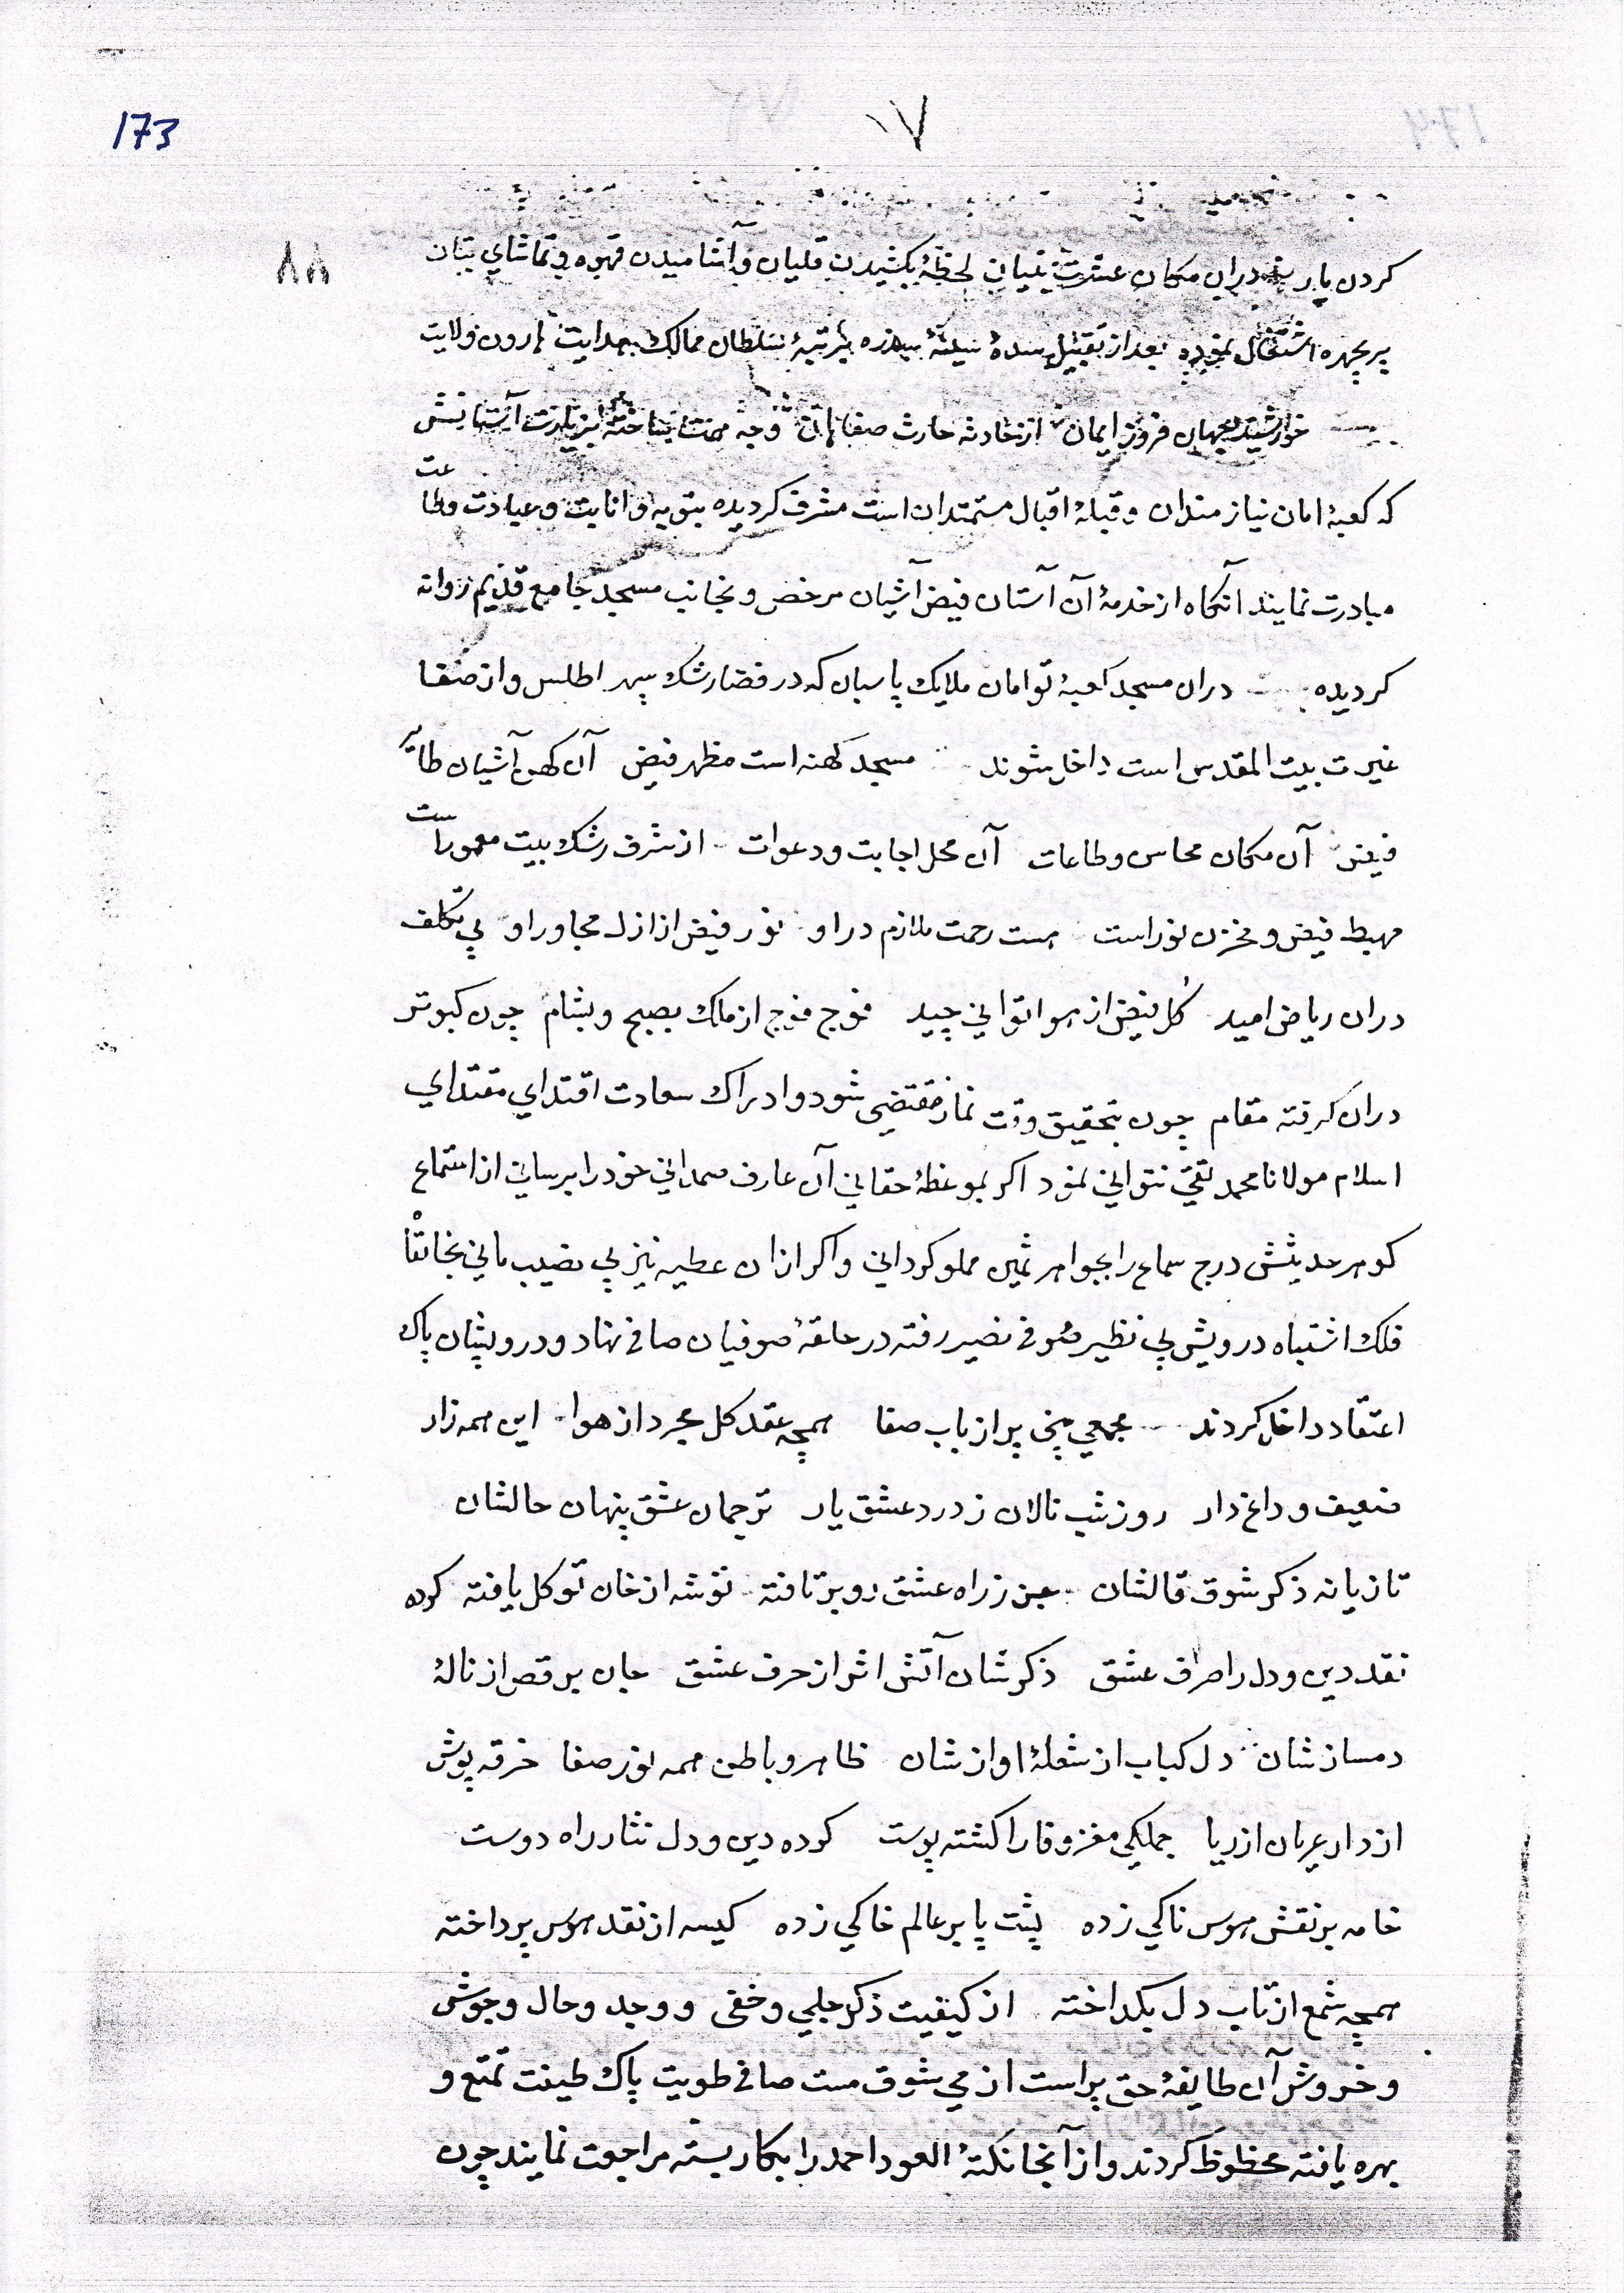 173
۱۷
۸۸
کردن یار دران مکان عشرت بنیان لحظهٔ بکشیدن قلیان و آشامیدن قهوه و تماشای بتان
پریچهره اشتغال نموده بعد از تقبیل سدهٔ سدره مرتبهٔ سلطان ممالک هدایت هارون ولایت
خورشید جهان فروز ایمان از حادثه حارث صفاهان آستانش
که کعبهٔ امان نیازمندان و قبلهٔ اقبال مستمندان است مشرف کردیده بتوبه و انابت و عبادت وطاعت
مبادرت نمایند آنکاه از خدمهٔ آن آستان فیض آشیان مرخص و بجانب مسجد جامع قدیم روانه
کردیده دران مسجد کعبهٔ توامان ملایک پاسبان که در فضا رشک سپهر اطلس و از صفا
غیرت بیت المقدس است داخل شوند مسجد کهنه است مظهر فیض آن کهن آشیان طایر
فیض آن مکان محاسن وطاعات آن محل اجابت ودعوات از شرف رشک بیت معمور است
مهبط فیض و مخزن نور است هست رحمت ملازم در او نور فیض از ازل مجاور او بی تکلف
دران ریاض امید کل فیض از هوا توانی چید فوج فوج از ملک بصبح و بشام چون کبوتر
دران کرفته مقام چون بتحقیق وقت نماز مقتضی شود و ادراک سعادت اقتدای مقتدای
اسلام مولانا محمد تقی نتوانی نمود اکر بموعظهٔ حقانی آن عارف صمدانی خود را برسانی از استماع
کوهر حدیثش درج سماع را بجواهر ثمین مملو کردانی و اکر ازان عطیه نیز بی نصیب مانی بخانقاه
فلک اشتباه درویش بی نظیر صوفی نصیر رفته در حلقهٔ صوفیان صافی نهاد و درویشان پاک
اعتقاد داخل کردند مجمعی پر از باب صفا همچه عقد کل مجرد از هوا این همه زار
ضعیف و داغدار روز شب نالان ز درد عشق یار ترجمان عشق پنهان حالشان
تازیانه ذکر شوق قالشان جز ز راه عشق رو برتافته توشه از خان توکل یافته کرده
نقد دین و دل را صراف عشق ذکرشان آتش اثر از حرف عشق جان برقص از نالهٔ
دمسازشان دل کباب از شعلهٔ اوازشان ظاهر و باطن همه نور صفا خرقه پوش
از دار عریان از ریا جملکی مغز وفا را کشته پوست کرده دین و دل نثار راه دوست
خامه بر نقش هوس ناکی زده پشت پا بر عالم خاکی زده کیسه از نقد هوس پرداخته
همچه شمع از تاب دل بکداخته از کیفیت ذکر جلی و خفی و وجد و حال و جوش
و خروش آن طایفهٔ حق پراست از می شوق مست صافی طویت پاک طینت تمتع و
بهره یافته محظوظ کردند و از آنجا نکتهٔ العود احمد را بکار بسته مراجعت نمایند چون